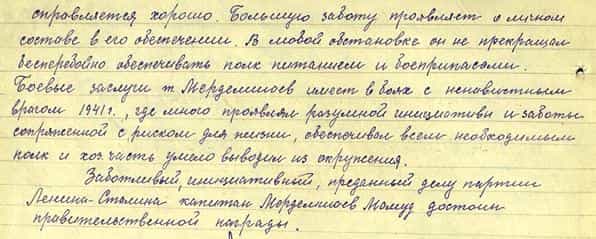 справляется хорошо. Большую заботу проявляет о личном
составе в его обеспечении. В любой обстановке он не прекращал
бесперебойно обеспечивать полк питанием и боеприпасами.
Боевые заслуги т. Мерделишоев имеет в боях с ненавистным
врагом 1941 г., где много проявлял разумной инициативи и заботы
сопряженной с риском для жизни, обеспечивал всем необходимым
полк и хоз. часть умело выводил из окружения.
Заботливый, инициативный, преданный делу партии
Ленина-Сталина капитан Мерделишоев Мамуд достоин
правительственной награды.